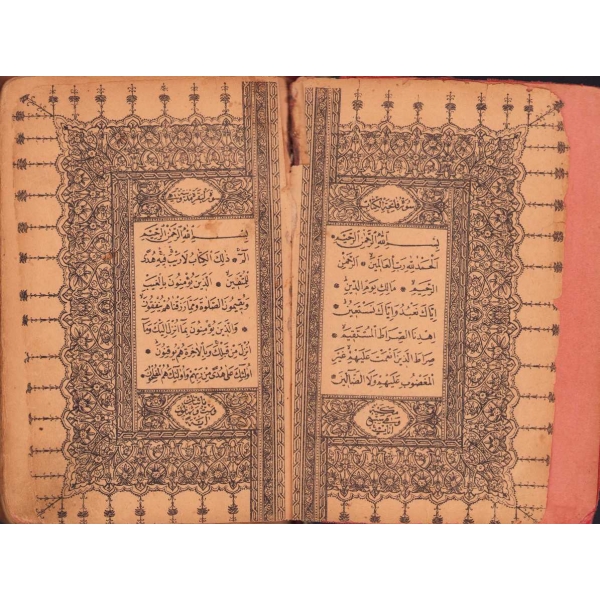 سورة فاتحة الكتاب
بسم الله الرحمن الرحيم
الحمد لله رب العالمين الرحمن
الرحيم مالك يوم الدين
اياك نعبد واياك نستعين
اهدنا الصراط المستقيم
صراط الذين انعمت عليهم غير
المغضوب عليهم ولا الضالين
بسم الله الرحمن الرحيم
الم ذلك الكتاب لا ريب فيه هدى
للمتقين الذين يؤمنون بالغيب
ويقيمون الصلوة ومما رزقناهم ينفقون
والذين يؤمنون بما انزل اليك وما
انزل من قبلك وبالاخرة هم يوقنون
اولئك على هدى من ربهم واولئك هم المفلحون